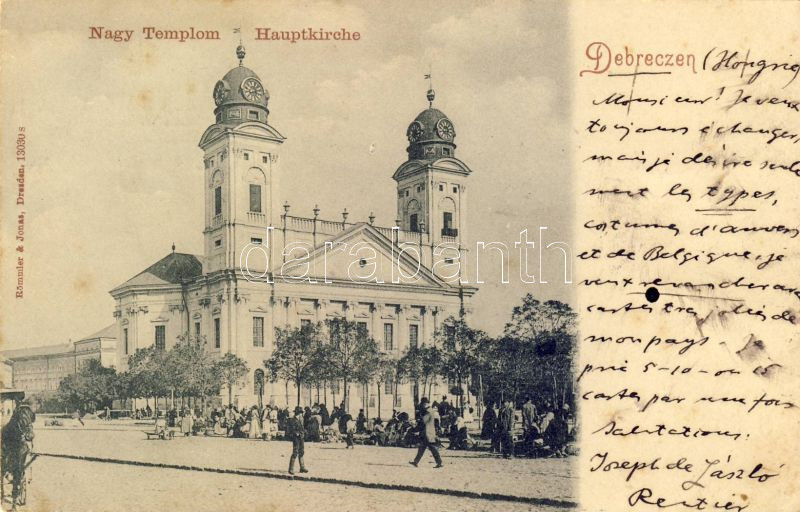 Nagy Templom Hauptkirche
Debreczen (Hongrie)
Monsieur! Je veux
toujours échanger,
mais je désire seule
ment les types,
costumes d'anvers
et de Belgique, je
veux
cartes très jolies de
mon pays. Je
prie 5-10-ou 15
cartes par une fois
Salutations.
Joseph de László
Rentier
Römmler & Jonas, Dresden. 13030 s
darabanth.com